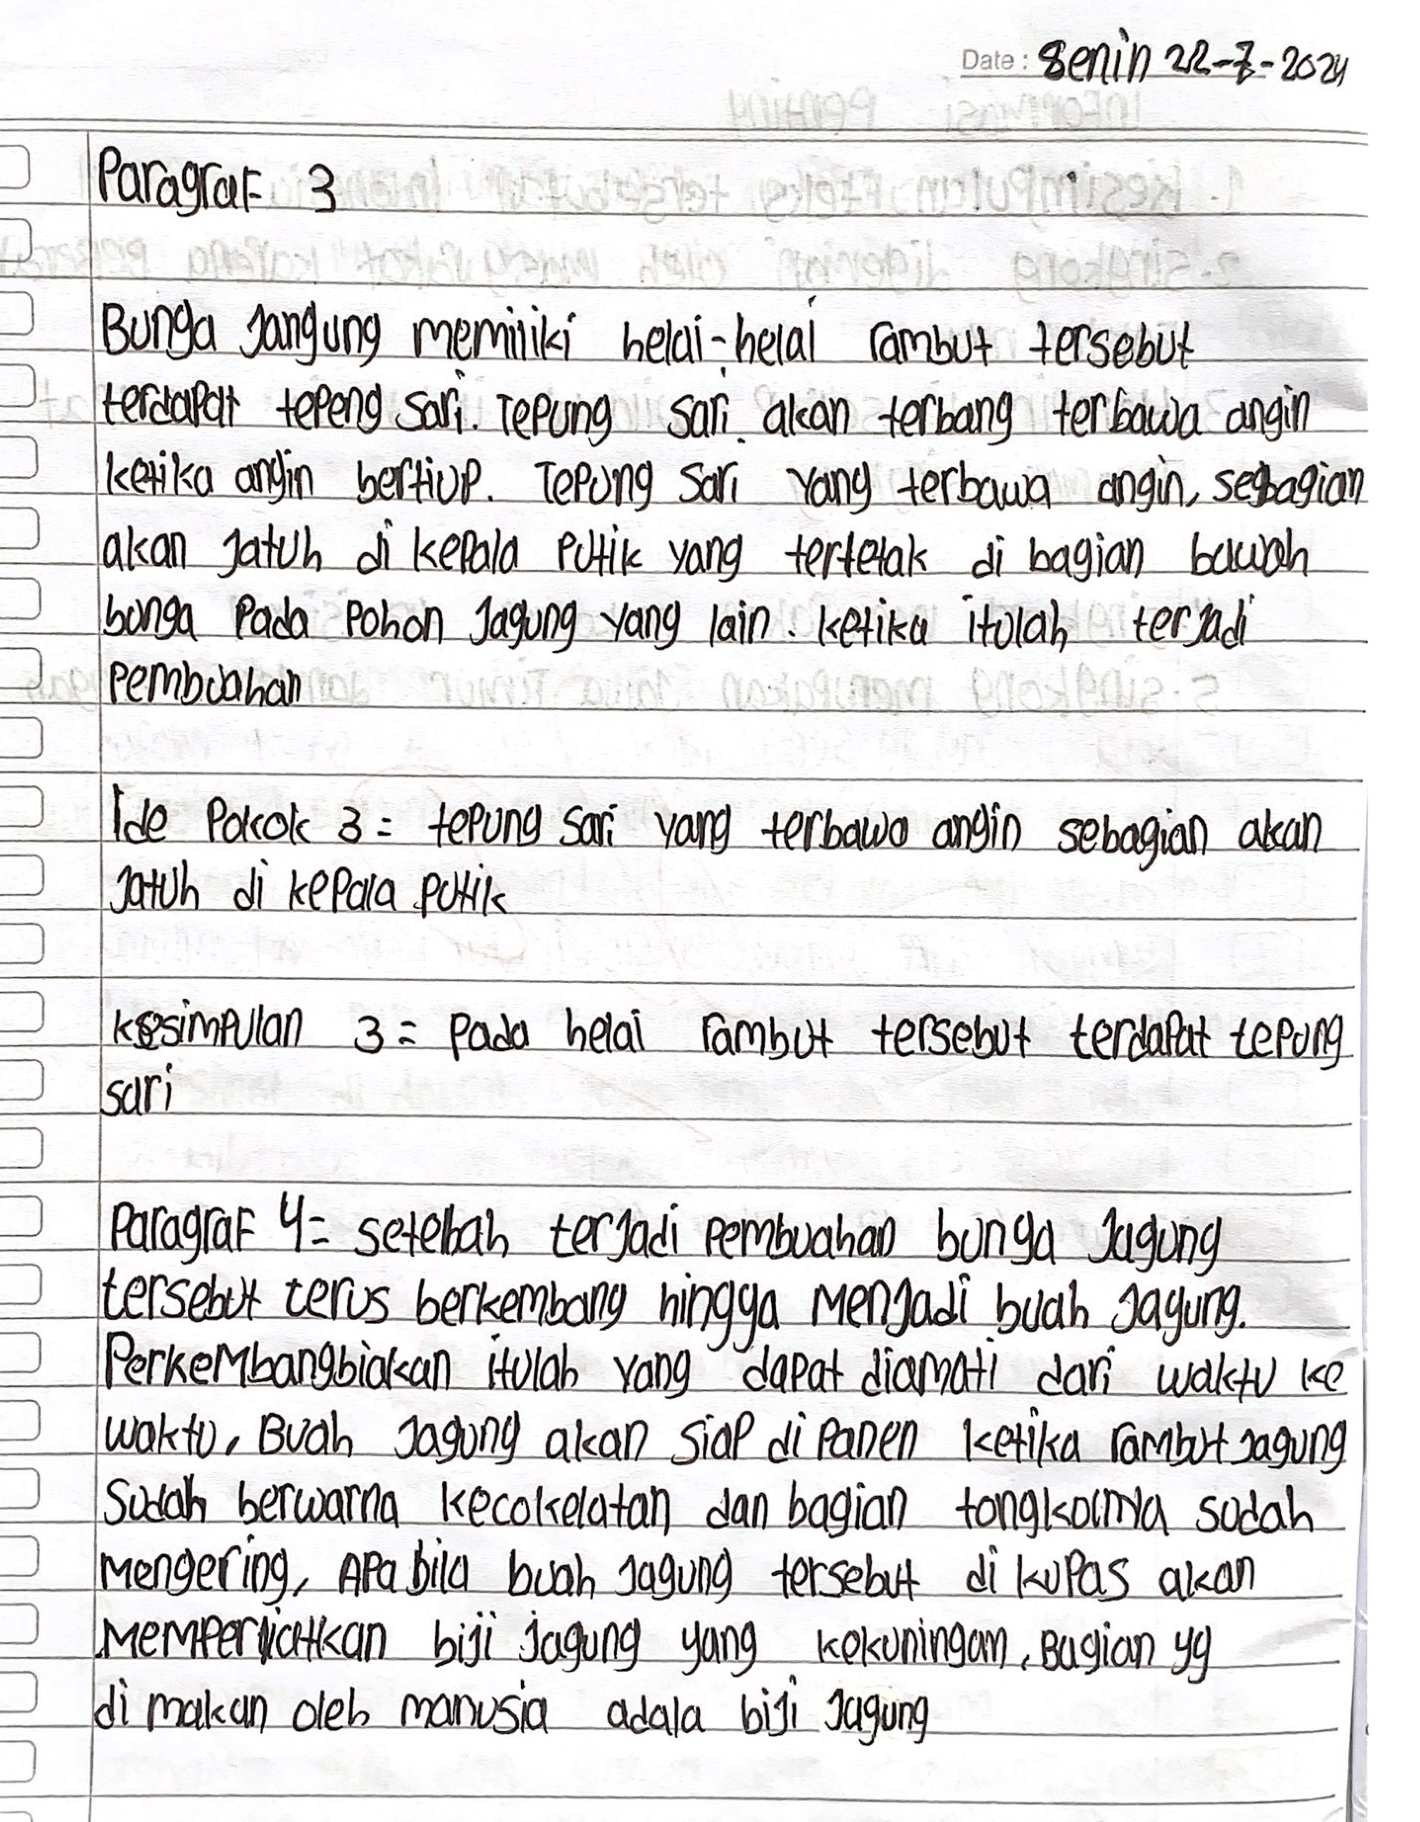 Date : Senin 22-7-2024
Paragraf 3
Bunga Jangung memiliki helai-helai rambut tersebut
terdapat tepeng sari. Tepung sari akan terbang terbawa angin
ketika angin bertiup. Tepung sari yang terbawa angin, sebagian
akan jatuh di kepala putik yang terletak di bagian bawah
bunga pada pohon jagung yang lain. ketika itulah terjadi
pembuahan
Ide Pokok 3 = tepung sari yang terbawa angin sebagian akan
jatuh di kepala putik
kesimpulan 3 = pada helai rambut tersebut terdapat tepung
sari
Paragraf 4 = setelah terjadi pembuahan bunga jagung
tersebut terus berkembang hingga menjadi buah jagung.
Perkembangbiakan itulah yang dapat diamati dari waktu ke
waktu, Buah jagung akan siap di panen ketika rambut jagung
sudah berwarna kecokelatan dan bagian tongkolnya sudah
mengering, Apabila buah jagung tersebut di kupas akan
memperlihatkan biji jagung yang kekuningan, Bagian yg
di makan oleh manusia adala biji jagung